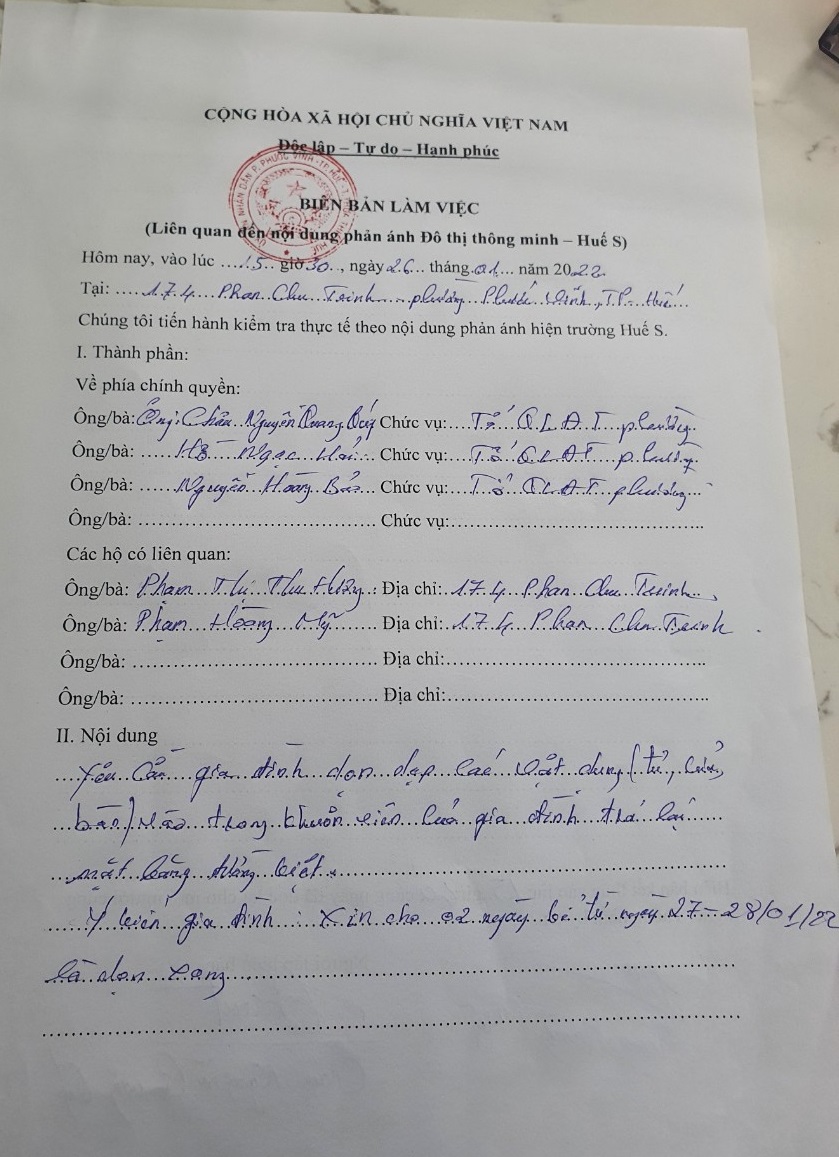 CỘNG HÒA XÃ HỘI CHỦ NGHĨA VIỆT NAM
Độc lập – Tự do – Hạnh phúc
BIÊN BẢN LÀM VIỆC
(Liên quan đến nội dung phản ánh Đô thị thông minh – Huế S)
Hôm nay, vào lúc ....15.. giờ 30.., ngày 26... tháng 01... năm 2022.
Tại: .....174...Phan..Chu..Trinh....phường...Phước..Vĩnh.., T.P..Huế..
Chúng tôi tiến hành kiểm tra thực tế theo nội dung phản ánh hiện trường Huế S.
I. Thành phần:
Về phía chính quyền:
Ông/bà: Ông: Châu Nguyễn Quang Chức vụ:....Tổ Q L Đ T phường
Ông/bà: .....Hồ Ngọc Hải... Chức vụ:....Tổ Q L Đ T phường
Ông/bà: .....Nguyễn Hoàng Bảo... Chức vụ:....Tổ Q L Đ T phường
Ông/bà: ........................................ Chức vụ:..........................................
Các hộ có liên quan:
Ông/bà: Phạm Thị Thu Địa chỉ: 174 Phan Chu Trinh
Ông/bà: Phạm Hoàng Mỹ Địa chỉ: 174 Phan Chu Trinh
Ông/bà: ......................................... Địa chỉ:...........................................
Ông/bà: ......................................... Địa chỉ:...........................................
II. Nội dung
Yêu cầu gia đình dọn dẹp các vật dụng (tủ, cửa,
bàn) vào trong khuôn viên của gia đình trả lại
mặt bằng
Ý kiến gia đình : Xin cho 02 ngày kể từ ngày 27 - 28/01/22
là dọn xong